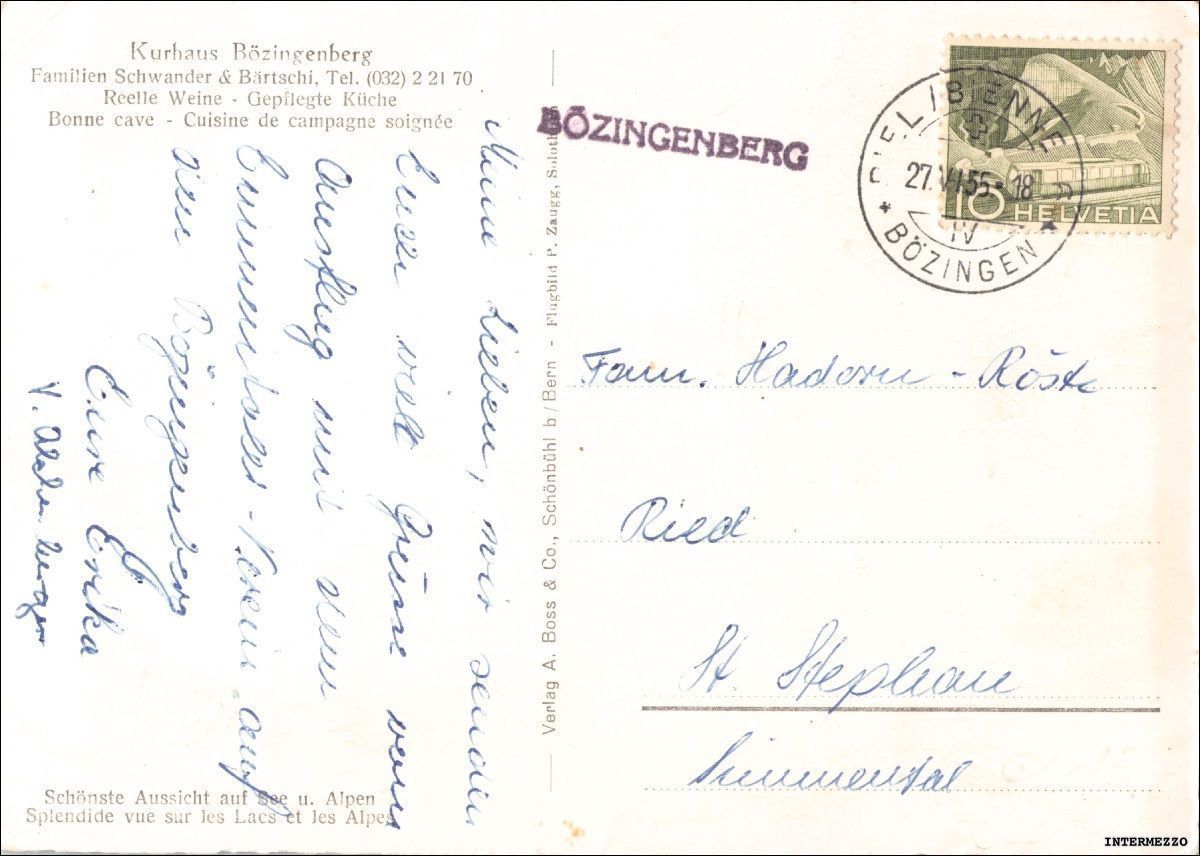 Kurhaus Bözingenberg
Familien Schwander & Bärtschi, Tel. (032) 2 21 70
Reelle Weine - Gepflegte Küche
Bonne cave - Cuisine de campagne soignée
Meine Lieben, wir senden
Euch viele Grüsse vom
Ausflug mit dem
Simmentaler-Verein auf
den Bözingenberg
Eure Erika
Schönste Aussicht auf See u. Alpen
Splendide vue sur les Lacs et les Alpes
Verlag A. Boss & Co., Schönbühl b/Bern - Flugbild P. Zaugg, Soloth
BÖZINGENBERG
BIEL/BIENNE
27.VI.55-18
IV
* BÖZINGEN *
10 HELVETIA
Fam. Hadorn -
Ried
St. Stephan
Simmental
INTERMEZZO